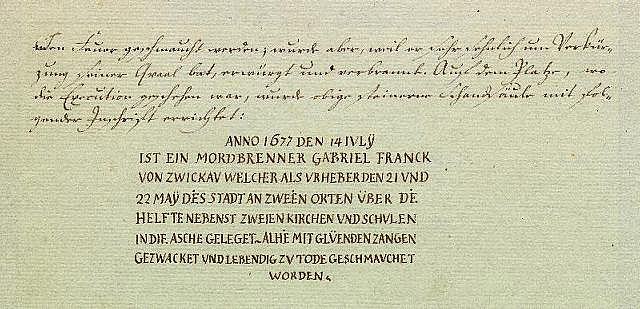 den Feuer geschmaucht werden; wurde aber, weil er sehr sehnlich um Verkür-
zung seiner Quaal bat, erwürgt und verbrannt. Auf dem Platze, wo
die Execution geschehen war, wurde obige steinerne Schandsäule mit fol-
gender Inschrift errichtet:
ANNO 1677 DEN 14 IVLŸ
IST EIN MORDBRENNER GABRIEL FRANCK
VON ZWICKAV WELCHER ALS VRHEBER DEN 21 VND
22 MAŸ DES STADT AN ZWEEN ORTEN ÜBER DE
HELFTE NEBENST ZWEIEN KIRCHEN VND SCHVLEN
IN DIE ASCHE GELEGET. ALHIE MIT GLÜENDEN ZANGEN
GEZWACKET VND LEBENDIG ZV TODE GESCHMAVCHET
WORDEN.